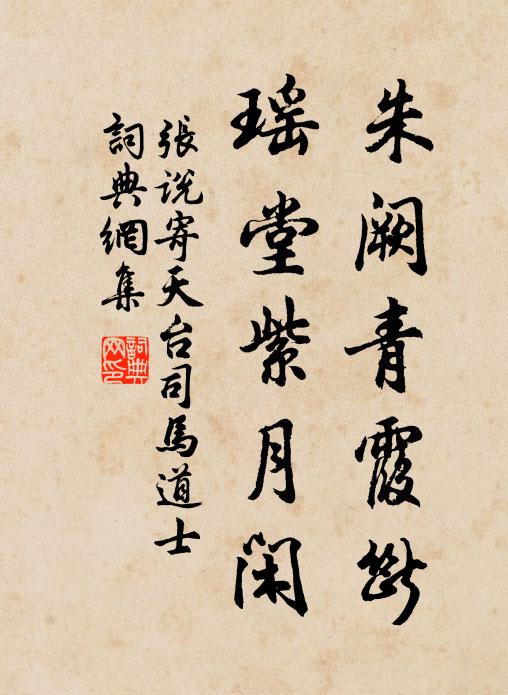 朱阙青霞断
瑶堂紫月闲
張说寄天台司馬道士
詞典網集
詞典网印